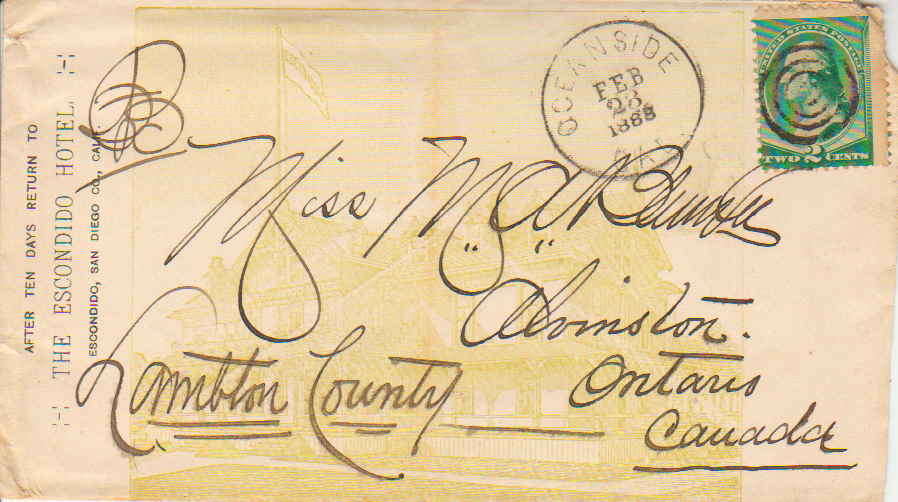 AFTER TEN DAYS RETURN TO
THE ESCONDIDO HOTEL,
ESCONDIDO, SAN DIEGO CO., CALIF.
OCEANSIDE
FEB
23
1888
CAL
UNITED STATES POSTAGE
TWO 2 CENTS
Miss M A
Alvinston.
Ontario
Canada
Lambton County